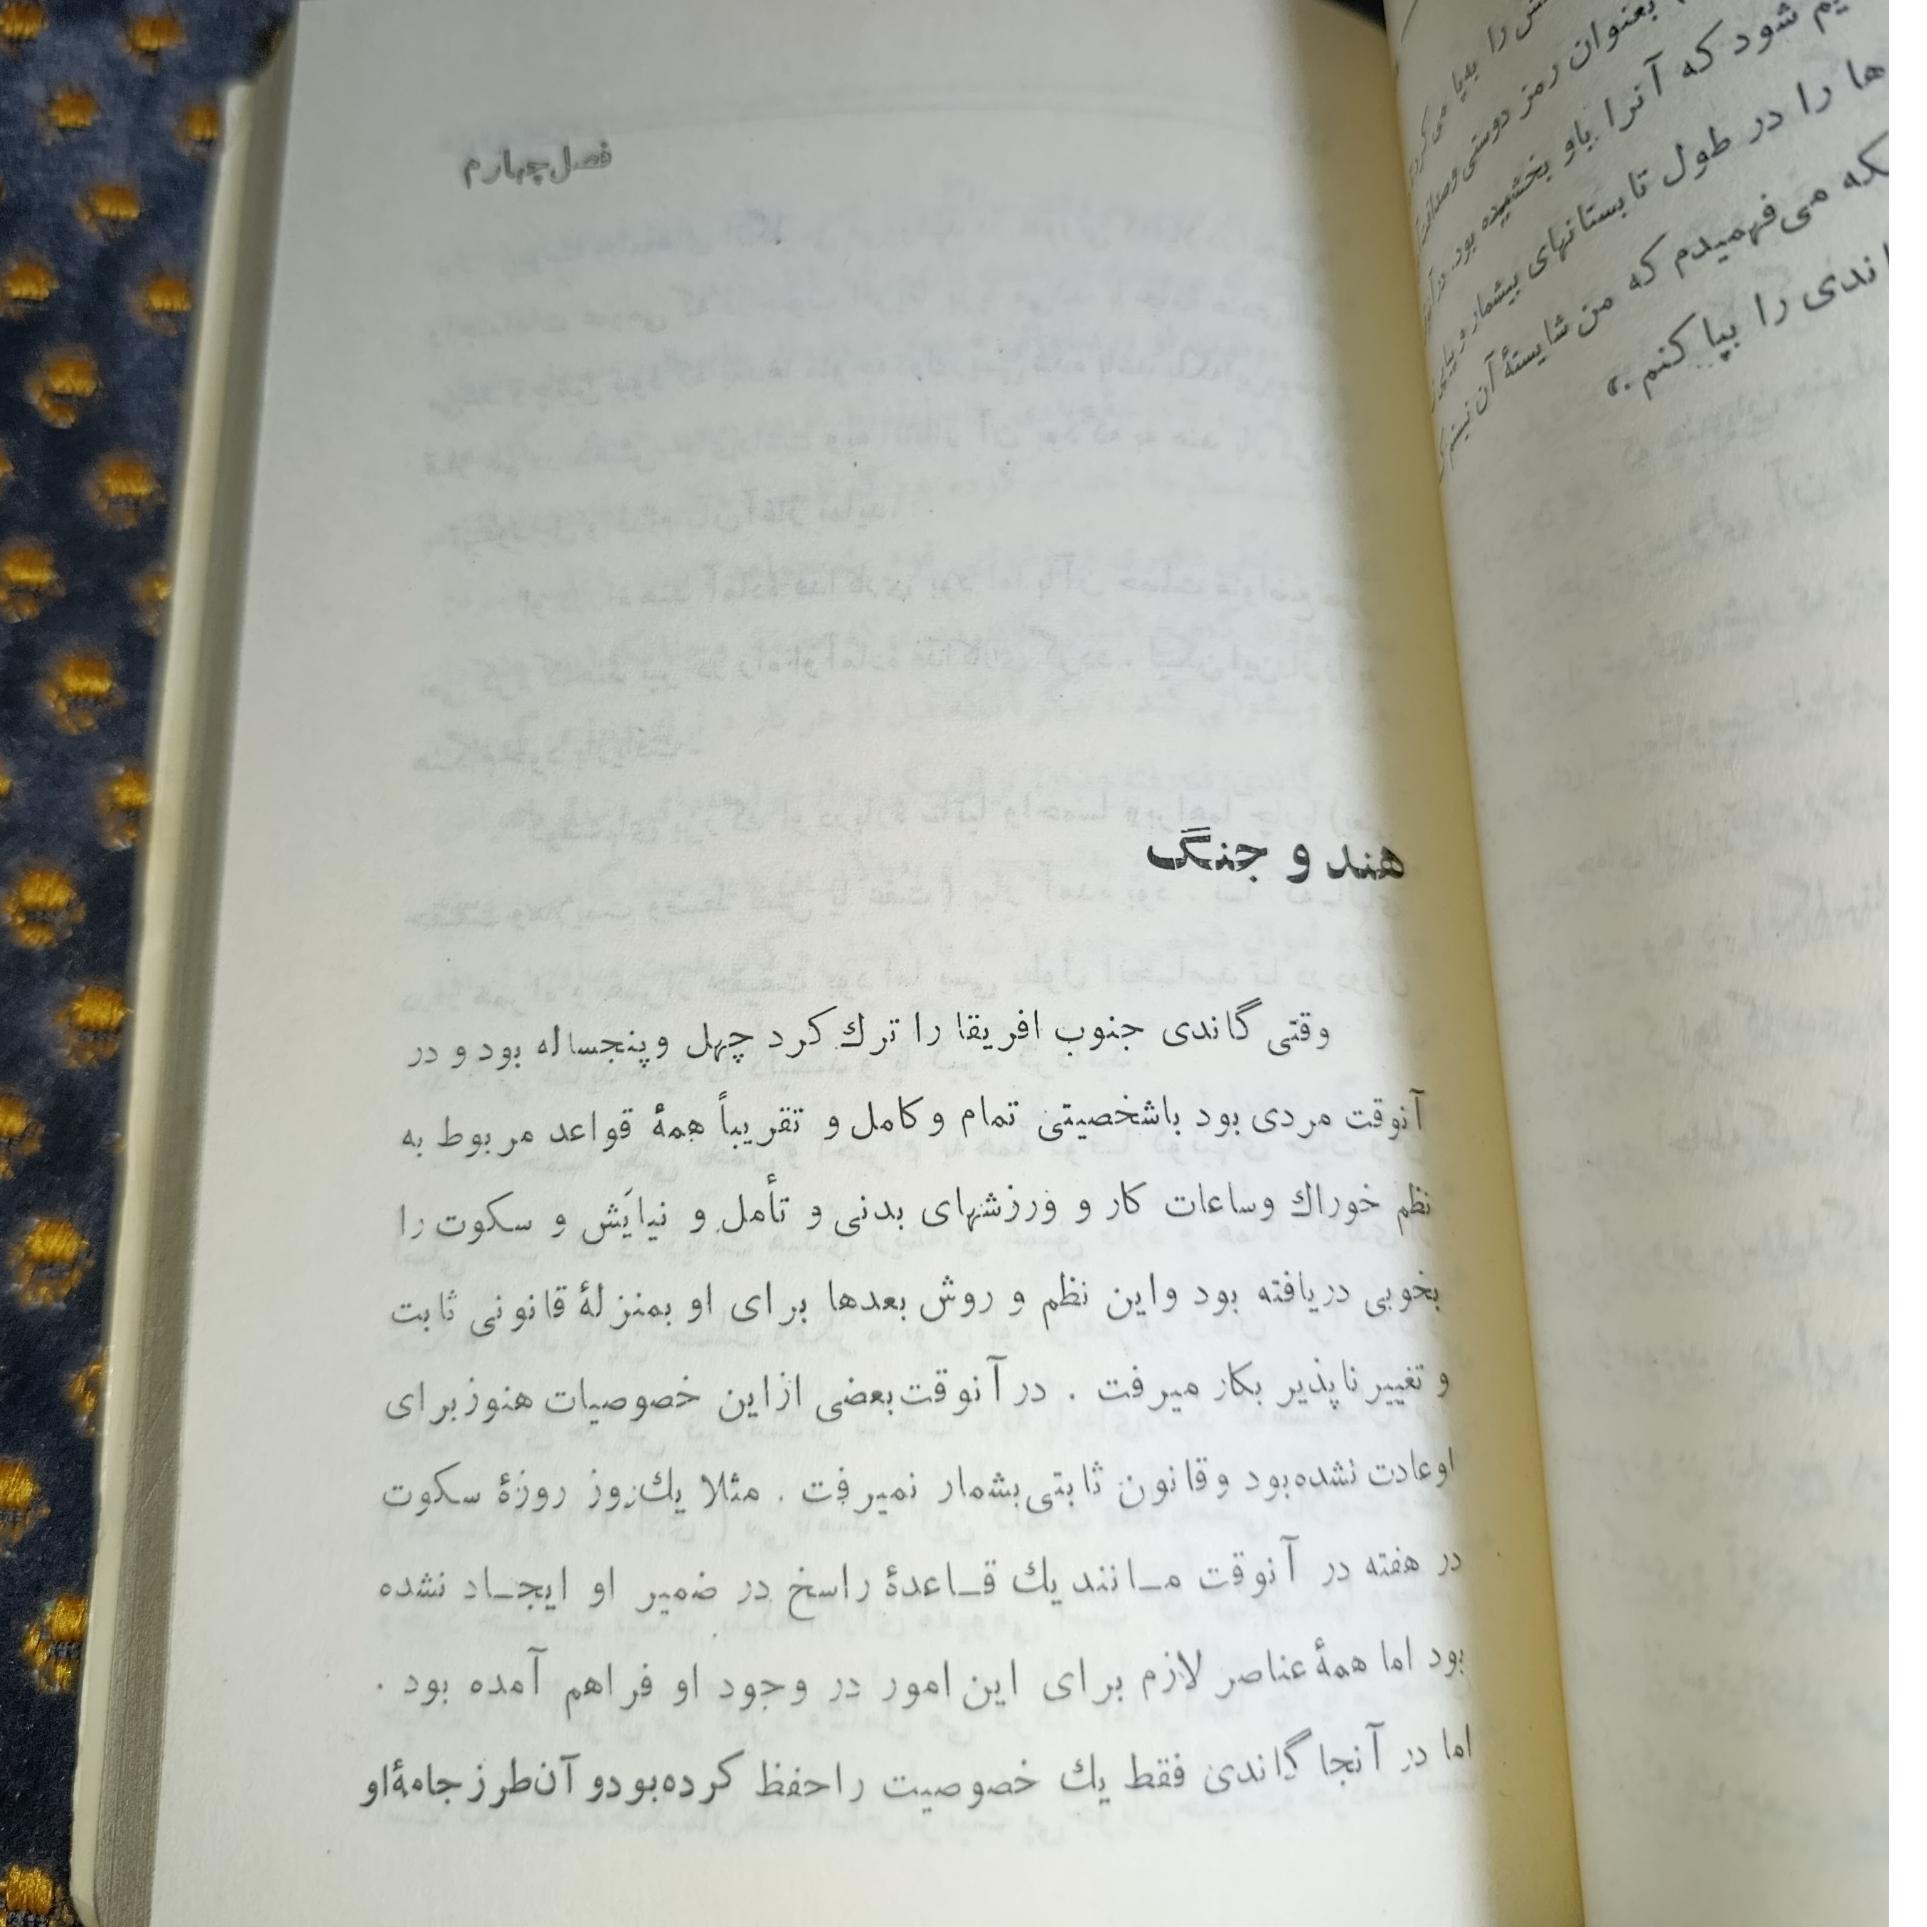 را بپا می‌کرد
بعنوان رمز دوستی و صداقت
یم شود که آنرا باو بخشیده بود. در آن
ها را در طول تابستانهای بیشمار در پای
که می‌فهمیدم که من شایستهٔ آن نیستم ک
اندی را بپا کنم .»
فصل چهارم
هند و جنگ
وقتی گاندی جنوب افریقا را ترك کرد چهل وپنجساله بود و در
آنوقت مردی بود باشخصیتی تمام و کامل و تقریباً همهٔ قواعد مربوط به
نظم خوراك وساعات کار و ورزشهای بدنی و تأمل و نیایش و سکوت را
بخوبی دریافته بود واین نظم و روش بعدها برای او بمنزلهٔ قانونی ثابت
و تغییر ناپذیر بکار میرفت . در آنوقت بعضی ازاین خصوصیات هنوز برای
اوعادت نشده‌بود وقانون ثابتی بشمار نمیرفت . مثلا یك‌روز روزهٔ سکوت
در هفته در آنوقت مـانند یك قـاعدهٔ راسخ در ضمیر او ایجـاد نشده
بود اما همهٔ عناصر لازم برای این امور در وجود او فراهم آمده بود .
اما در آنجا گاندی فقط یك خصوصیت راحفظ کرده‌بودو آن‌طرز جامهٔ‌او